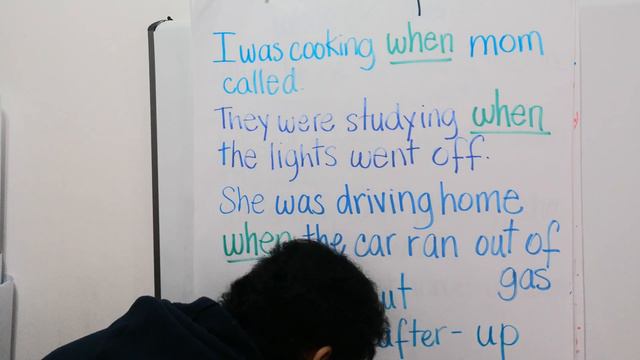 I was cooking when mom
called.
They were studying when
the lights went off.
She was driving home
when the car ran out of
gas
after - up